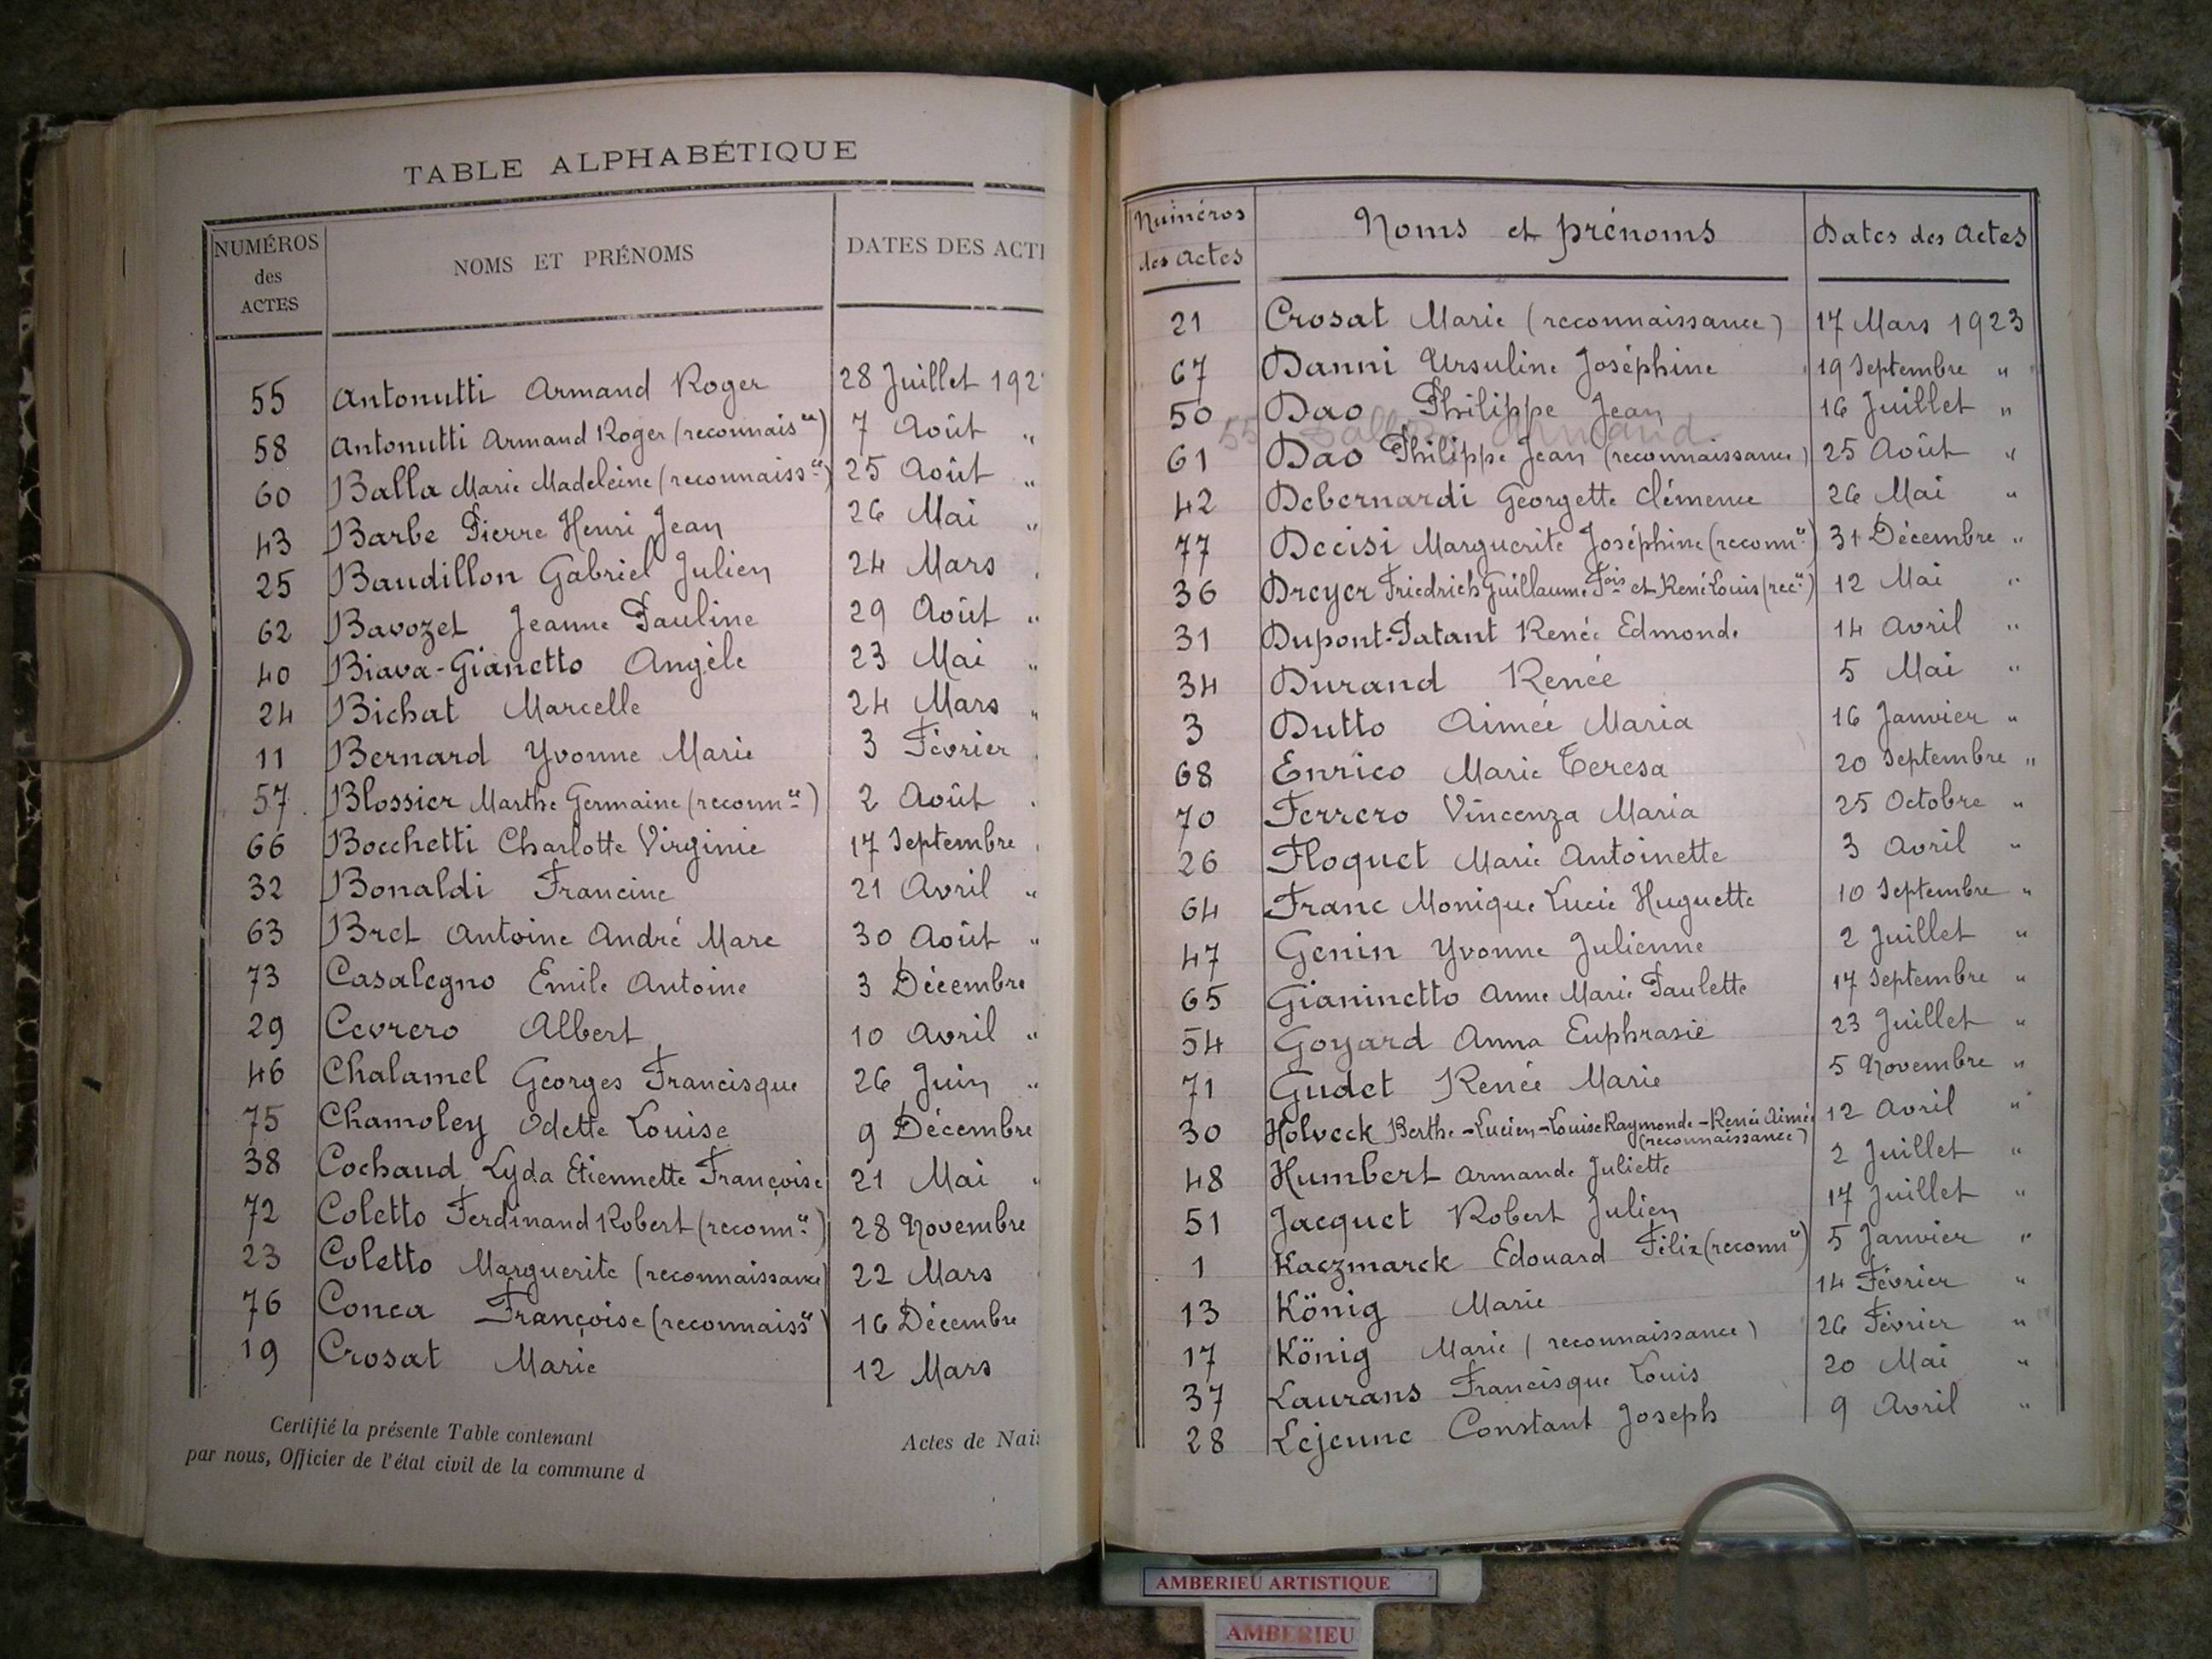 TABLE ALPHABÉTIQUE
NUMÉROS des ACTES NOMS ET PRÉNOMS DATES DES ACT
55 Antonutti Armand Roger 28 Juillet 192
58 Antonutti Armand Roger (reconnais ce) 7 Août "
60 Balla Marie Madeleine (reconnaiss ce) 25 Août "
43 Barbe Pierre Henri Jean 26 Mai "
25 Baudillon Gabriel Julien 24 Mars
62 Bavozet Jeanne Pauline 29 Août "
40 Biava-Gianetto Angèle 23 Mai "
24 Bichat Marcelle 24 Mars "
11 Bernard Yvonne Marie 3 Février
57 Blossier Marthe Germaine (reconn ce) 2 Août
66 Bocchetti Charlotte Virginie 17 Septembre
32 Bonaldi Francine 21 Avril "
63 Bret Antoine André Marc 30 Août "
73 Casalegno Emile Antoine 3 Décembre
29 Cevrero Albert 10 Avril "
46 Chalamel Georges Francisque 26 Juin "
75 Chamoley Odette Louise 9 Décembre
38 Cochaud Lyda Etiennette Françoise 21 Mai "
72 Coletto Ferdinand Robert (reconn ce) 28 Novembre
23 Coletto Marguerite (reconnaissance) 22 Mars
76 Conca Françoise (reconnaiss ce) 16 Décembre
19 Crosat Marie 12 Mars
Certifié la présente Table contenant Actes de Nai
par nous, Officier de l'état civil de la commune d
Numéros des Actes Noms et prénoms Dates des Actes
21 Crosat Marie (reconnaissance) 17 Mars 1923
67 Danni Ursuline Joséphine 19 Septembre "
50 Dao Philippe Jean 16 Juillet "
61 Dao Philippe Jean (reconnaissance) 25 Août "
42 Debernardi Georgette Clémence 26 Mai "
77 Decisi Marguerite Joséphine (reconn ce) 31 Décembre "
36 Dreyer Friedrich Guillaume Fois et René Louis (rec ce) 12 Mai "
31 Dupont-Patant Renée Edmonde 14 Avril "
34 Durand Renée 5 Mai "
3 Dutto Aimée Maria 16 Janvier "
68 Enrico Marie Teresa 20 Septembre "
70 Ferrero Vincenza Maria 25 Octobre "
26 Floquet Marie Antoinette 3 Avril "
64 Franc Monique Lucie Huguette 10 Septembre "
47 Genin Yvonne Julienne 2 Juillet "
65 Gianinetto Anne Marie Paulette 17 Septembre "
54 Goyard Anna Euphrasie 23 Juillet "
71 Gudet Renée Marie 5 Novembre "
30 Holveck Berthe-Lucien-Louise Raymonde-Renée Aimée 12 Avril "
(reconnaissance)
48 Humbert Armande Juliette 2 Juillet "
51 Jacquet Robert Julien 17 Juillet "
1 Kaczmarek Edouard Félix (reconn ce) 5 Janvier "
13 König Marie 14 Février "
17 König Marie (reconnaissance) 26 Février "
37 Laurans Francisque Louis 20 Mai "
28 Lejeune Constant Joseph 9 Avril "
AMBERIEU ARTISTIQUE
AMBERIEU